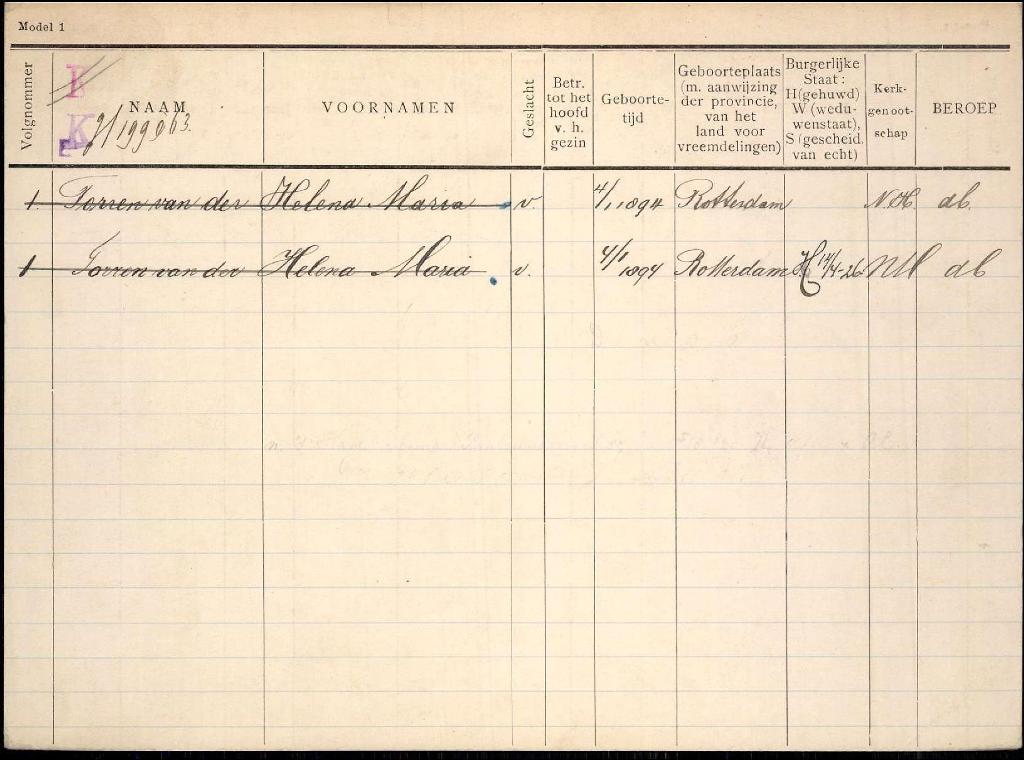 Model 1
Volgnommer
NAAM
VOORNAMEN
Geslacht
Betr. tot het hoofd v. h. gezin
Geboorte-tijd
Geboorteplaats (m. aanwijzing der provincie, van het land voor vreemdelingen)
Burgerlijke Staat: H (gehuwd) W (wedu-wenstaat), S (gescheid. van echt)
Kerk-genoot-schap
BEROEP
K
1. Torren van der Helena Maria v. 4/1 1894 Rotterdam N.H. db.
1 Torren van der Helena Maria v. 4/1 1894 Rotterdam H 14/4-26 NH db